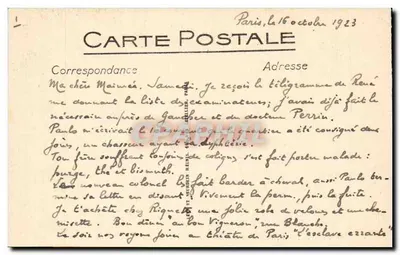 1
Paris, le 16 octobre 1923
CARTE POSTALE
Correspondance
Adresse
Ma chère Maimée, Samedi: Je reçois le télégramme de René
me donnant la liste des examinateurs; j'avais déjà fait le
nécessaire auprès de et du docteur Perrin.
Paulo m'écrivait le a été consigné dix
jours, un chasseur ayant la diphtérie.
Ton frère souffrant toujours de coliques s'est fait porter malade:
purge, thé et bismuth.
Le nouveau colonel les fait barder à cheval, aussi Paulo ter-
mine sa lettre en disant: Vivement la perm, puis la fuite.
Je t'achète chez Rignette une jolie robe de velours et une che-
misette. Bon dîner au bon Vigneron, rue Blanche.
Le soir nous voyons jouer au théâtre de Paris "l'esclave errante"